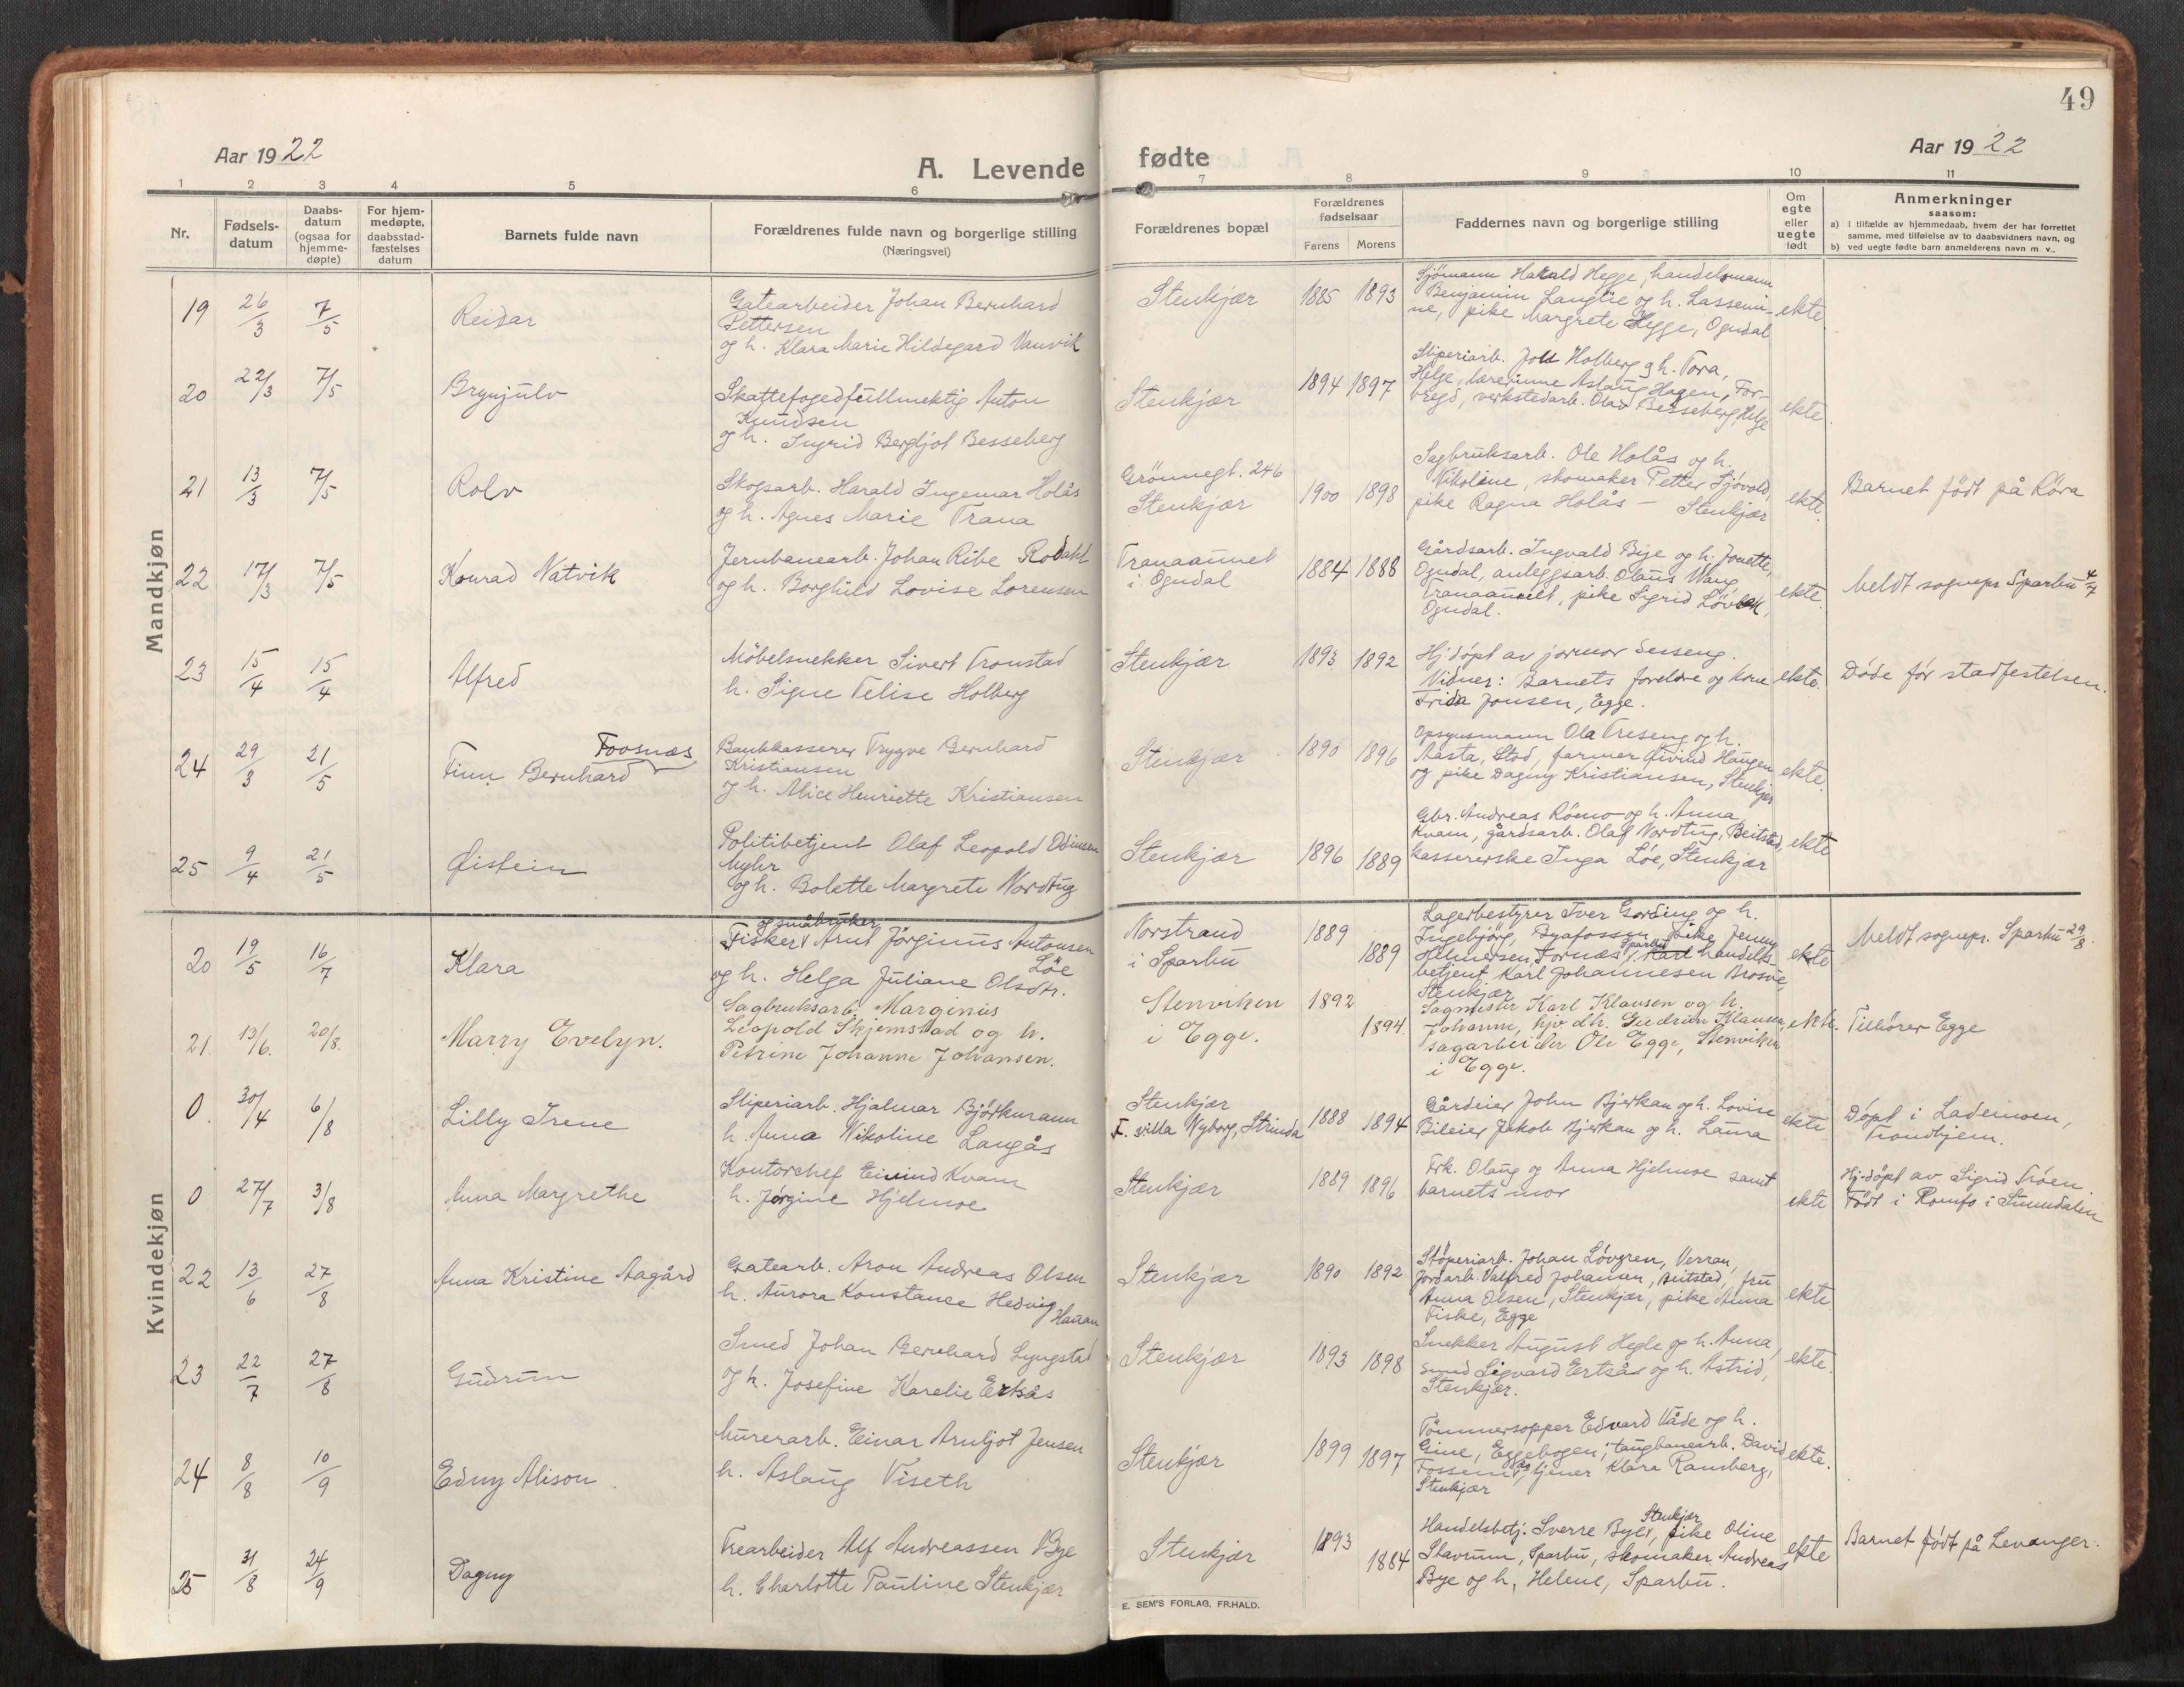 49
Aar 1922
A. Levende fødte
Aar 1922
1 2 3 4 5 6 7 8 9 10 11
Nr.
Fødsels-
datum
Daabs-
datum
(ogsaa for
hjemme-
døpte)
For hjem-
medøpte,
daabsstad-
fæstelses
datum
Barnets fulde navn
Forældrenes fulde navn og borgerlige stilling
(Næringsvei)
Forældrenes bopæl
Forældrenes
fødselsaar
Farens Morens
Faddernes navn og borgerlige stilling
Om
egte
eller
uegte
født
Anmerkninger
saasom:
a) i tilfælde av hjemmedaab, hvem der har forrettet
samme, med tilføielse av to daabsvidners navn, og
b) ved uegte fødte barn anmelderens navn m. v..
Mandkjøn
19 26/3 7/5 Reidar
Gatearbeider Johan Bernhard
Pettersen
og h. Klara Marie Hildegard Vanvik
Stenkjær 1885 1893
Sjömann Harald Hegge, handelsmann
Benjamin Langlie og h. Lassemi-
ne, pike Margrete Hegge, Ogndal
ekte.
20 22/3 7/5 Brynjulv
Skattefogedfullmektig Anton
Knudsen
og h. Ingrid Bergljot Besseberg
Stenkjær 1894 1897
Sliperiarb. Joll Holberg og h. Tora,
Helge, lærerinne Aslaug Hagen, For-
bregd, verkstedarb. Olav Besseberg, Helge
ekte.
21 13/3 7/5 Rolv
Skogsarb. Harald Ingemar Holås
og h. Agnes Marie Trana
Grönnegt. 246
Stenkjær 1900 1898
Sagbruksarb. Ole Holås og h.
Nikoline, skomaker Petter Sjövold,
pike Ragna Holås – Stenkjær
ekte.
Barnet födt på Röra
22 17/3 7/5 Konrad Natvik
Jernbanearb. Johan Ribe Rodahl
og h. Borghild Lovise Lorensen
Tranaaunet
i Ogndal 1884 1888
Gårdsarb. Ingvald Bye og h. Jonette,
Ogndal, anleggsarb. Olaus Wang,
Tranaaunet, pike Sigrid Lövbak,
Ogndal.
ekte.
Meldt sognepr. Sparbu 4/7
23 15/4 15/4 Alfred
Möbelsnekker Sivert Tronstad
h. Signe Telise Holberg
Stenkjær 1893 1892
Hj.döpt av jormor Sesseng.
Vidner: Barnets foreldre og kone
Frida Jonsen, Egge.
ekte.
Döde för stadfestelsen.
24 29/3 21/5 Finn Bernhard Foosnæs
Bankkasserer Trygve Bernhard
Kristiansen
og h. Alice Henriette Kristiansen
Stenkjær 1890 1896
Opsynsmann Ola Treseng og h.
Aasta, Stod, farmer Øivind Haugen
og pike Dagny Kristiansen, Stenkjær
ekte.
25 9/4 21/5 Øistein
Politibetjent Olaf Leopold Odinsen
Myhr
og h. Bolette Margrete Nordtug
Stenkjær 1896 1889
Gbr. Andreas Römo og h. Anna,
Kvam, gårdsarb. Olaf Nordtug, Beitstad,
kassererske Inga Löe, Stenkjær
ekte
Kvindekjøn
20 19/5 16/7 Klara
og småbruker
Fisker Arnt Jörginus Antonsen
Löe
og h. Helga Juliane Olsdtr.
Norstrand
i Sparbu 1889 1889
Lagerbestyrer Iver Gording og h.
Ingebjörg, Byafossen, pike Jenny
Helmersen, Fornæs, Sparbu, handels-
betjent Karl Johannesen Brosve,
Stenkjær
ekte
Meldt sognepr. Sparbu 29/8.
21. 13/6. 20/8. Marry Evelyn.
Sagbruksarb. Marginus
Leopold Skjemstad og h.
Petrine Johanne Johansen.
Stenviken
i Egge. 1892 1894
Sagmester Karl Klausen og h.
Johanne, Klausen,
sagarbeider Ole Egge, Stenviken
i Egge.
ekte.
Tilhører Egge
0. 30/4 6/8 Lilly Irene
Sliperiarb. Hjalmar Björkmann
h. Anna Nikoline Langås
Stenkjær
F. villa Nyborg, Strinda 1888 1894
Gårdeier John Bjerkan og h. Lovise
Bileier Jakob Bjerkan og h. Laura
ekte
Döpt i Lademoen,
Trondhjem.
0 27/7 3/8 Anna Margrethe
Kontorchef Eivind Kvam
h. Jörgine Hjelmoe
Stenkjær 1889 1896
Frk. Olaug og Anna Hjelmoe samt
barnets mor
ekte
Hj.döpt av Sigrid Tröen.
Födt i Romfo i Sunndalen
22 13/6 27/8 Anna Kristine Aagård
Gatearb. Aron Andreas Olsen
h. Aurora Konstance Hedvig Hanan
Stenkjær 1890 1892
Stöperiarb. Johan Lövgren, Verran,
jordarb. Valfred Johansen, Beitstad, fru
Anna Olsen, Stenkjær, pike Anna
Fiske, Egge
ekte
23 22/7 27/8 Gudrun
Smed Johan Bernhard Lyngstad
og h. Josefine Karelie Ertsås
Stenkjær 1893 1898
Snekker August Hegle og h. Anna,
smed Sigvard Ertsås og h. Astrid,
Stenkjær.
ekte.
24 8/8 10/9 Edny Alison.
Murerarb. Einar Arnljot Jensen
h. Aslaug Viseth
Stenkjær 1899 1897
Tömmersopper Edvard Våde og h.
Gine, Eggebogen, taugbanearb. David
Fossem, og tjener Klara Ramberg,
Stenkjær
ekte.
25 31/8 24/9 Dagny
Trearbeider Alf Andreassen Bye
h. Charlotte Pauline Stenkjær
Stenkjær 1893 1884
Handelsbetj. Sverre Bye, Stenkjær, pike Oline
Stavrum, Sparbu, skomaker Andreas
Bye og h. Helene, Sparbu.
ekte
Barnet födt på Levanger.
E. SEM'S FORLAG, FR.HALD.